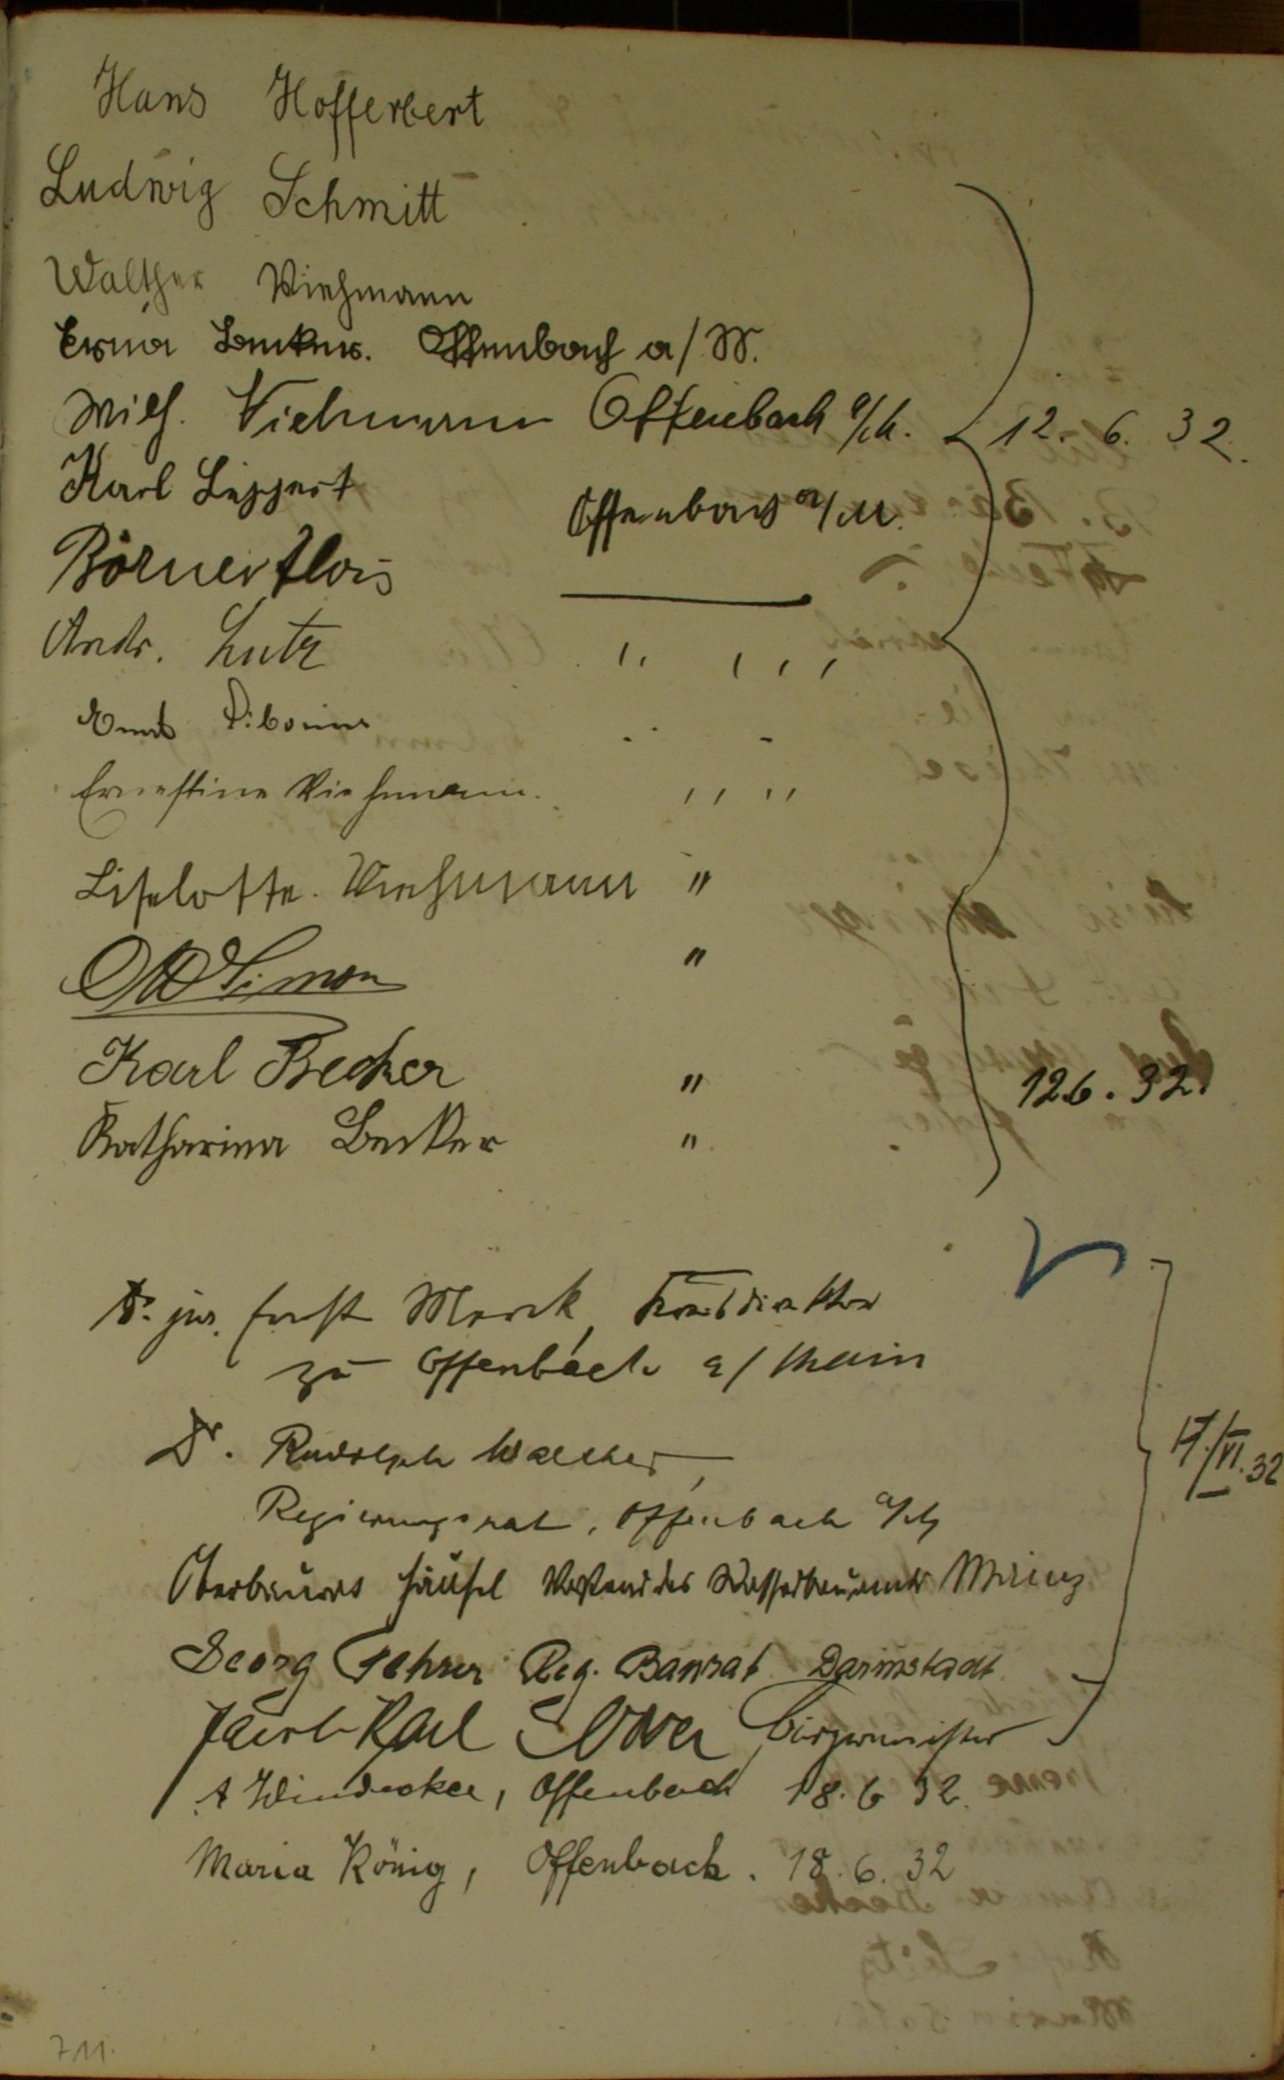 Hans Hofferbert
Ludwig Schmitt
Walther Viehmann
Erna Becker. Offenbach a/M.
Wilh. Viehmann Offenbach a/M. 12. 6. 32.
Karl Lippert Offenbach a/M.
Börner Alois
Andr. Lutz " "
Ernestine Viehmann. " "
Liselotte. Viehmann "
Otto Simon "
Karl Becker " 12.6.32.
Katharina Becker "
Dr. jur. Ernst Merck, Kreisdirektor
zu Offenbach a/Main
Dr. Rudolph Walcher,
Regierungsrat, Offenbach a/M
17./VI.32
Oberbaurat Häusel Vorstand des Wasserbauamts Mainz
Georg Fehrer Reg. Baurat Darmstadt
Jacob Karl Bürgermeister
A Windecker, Offenbach 18.6 32.
Maria König, Offenbach. 18.6.32
711.